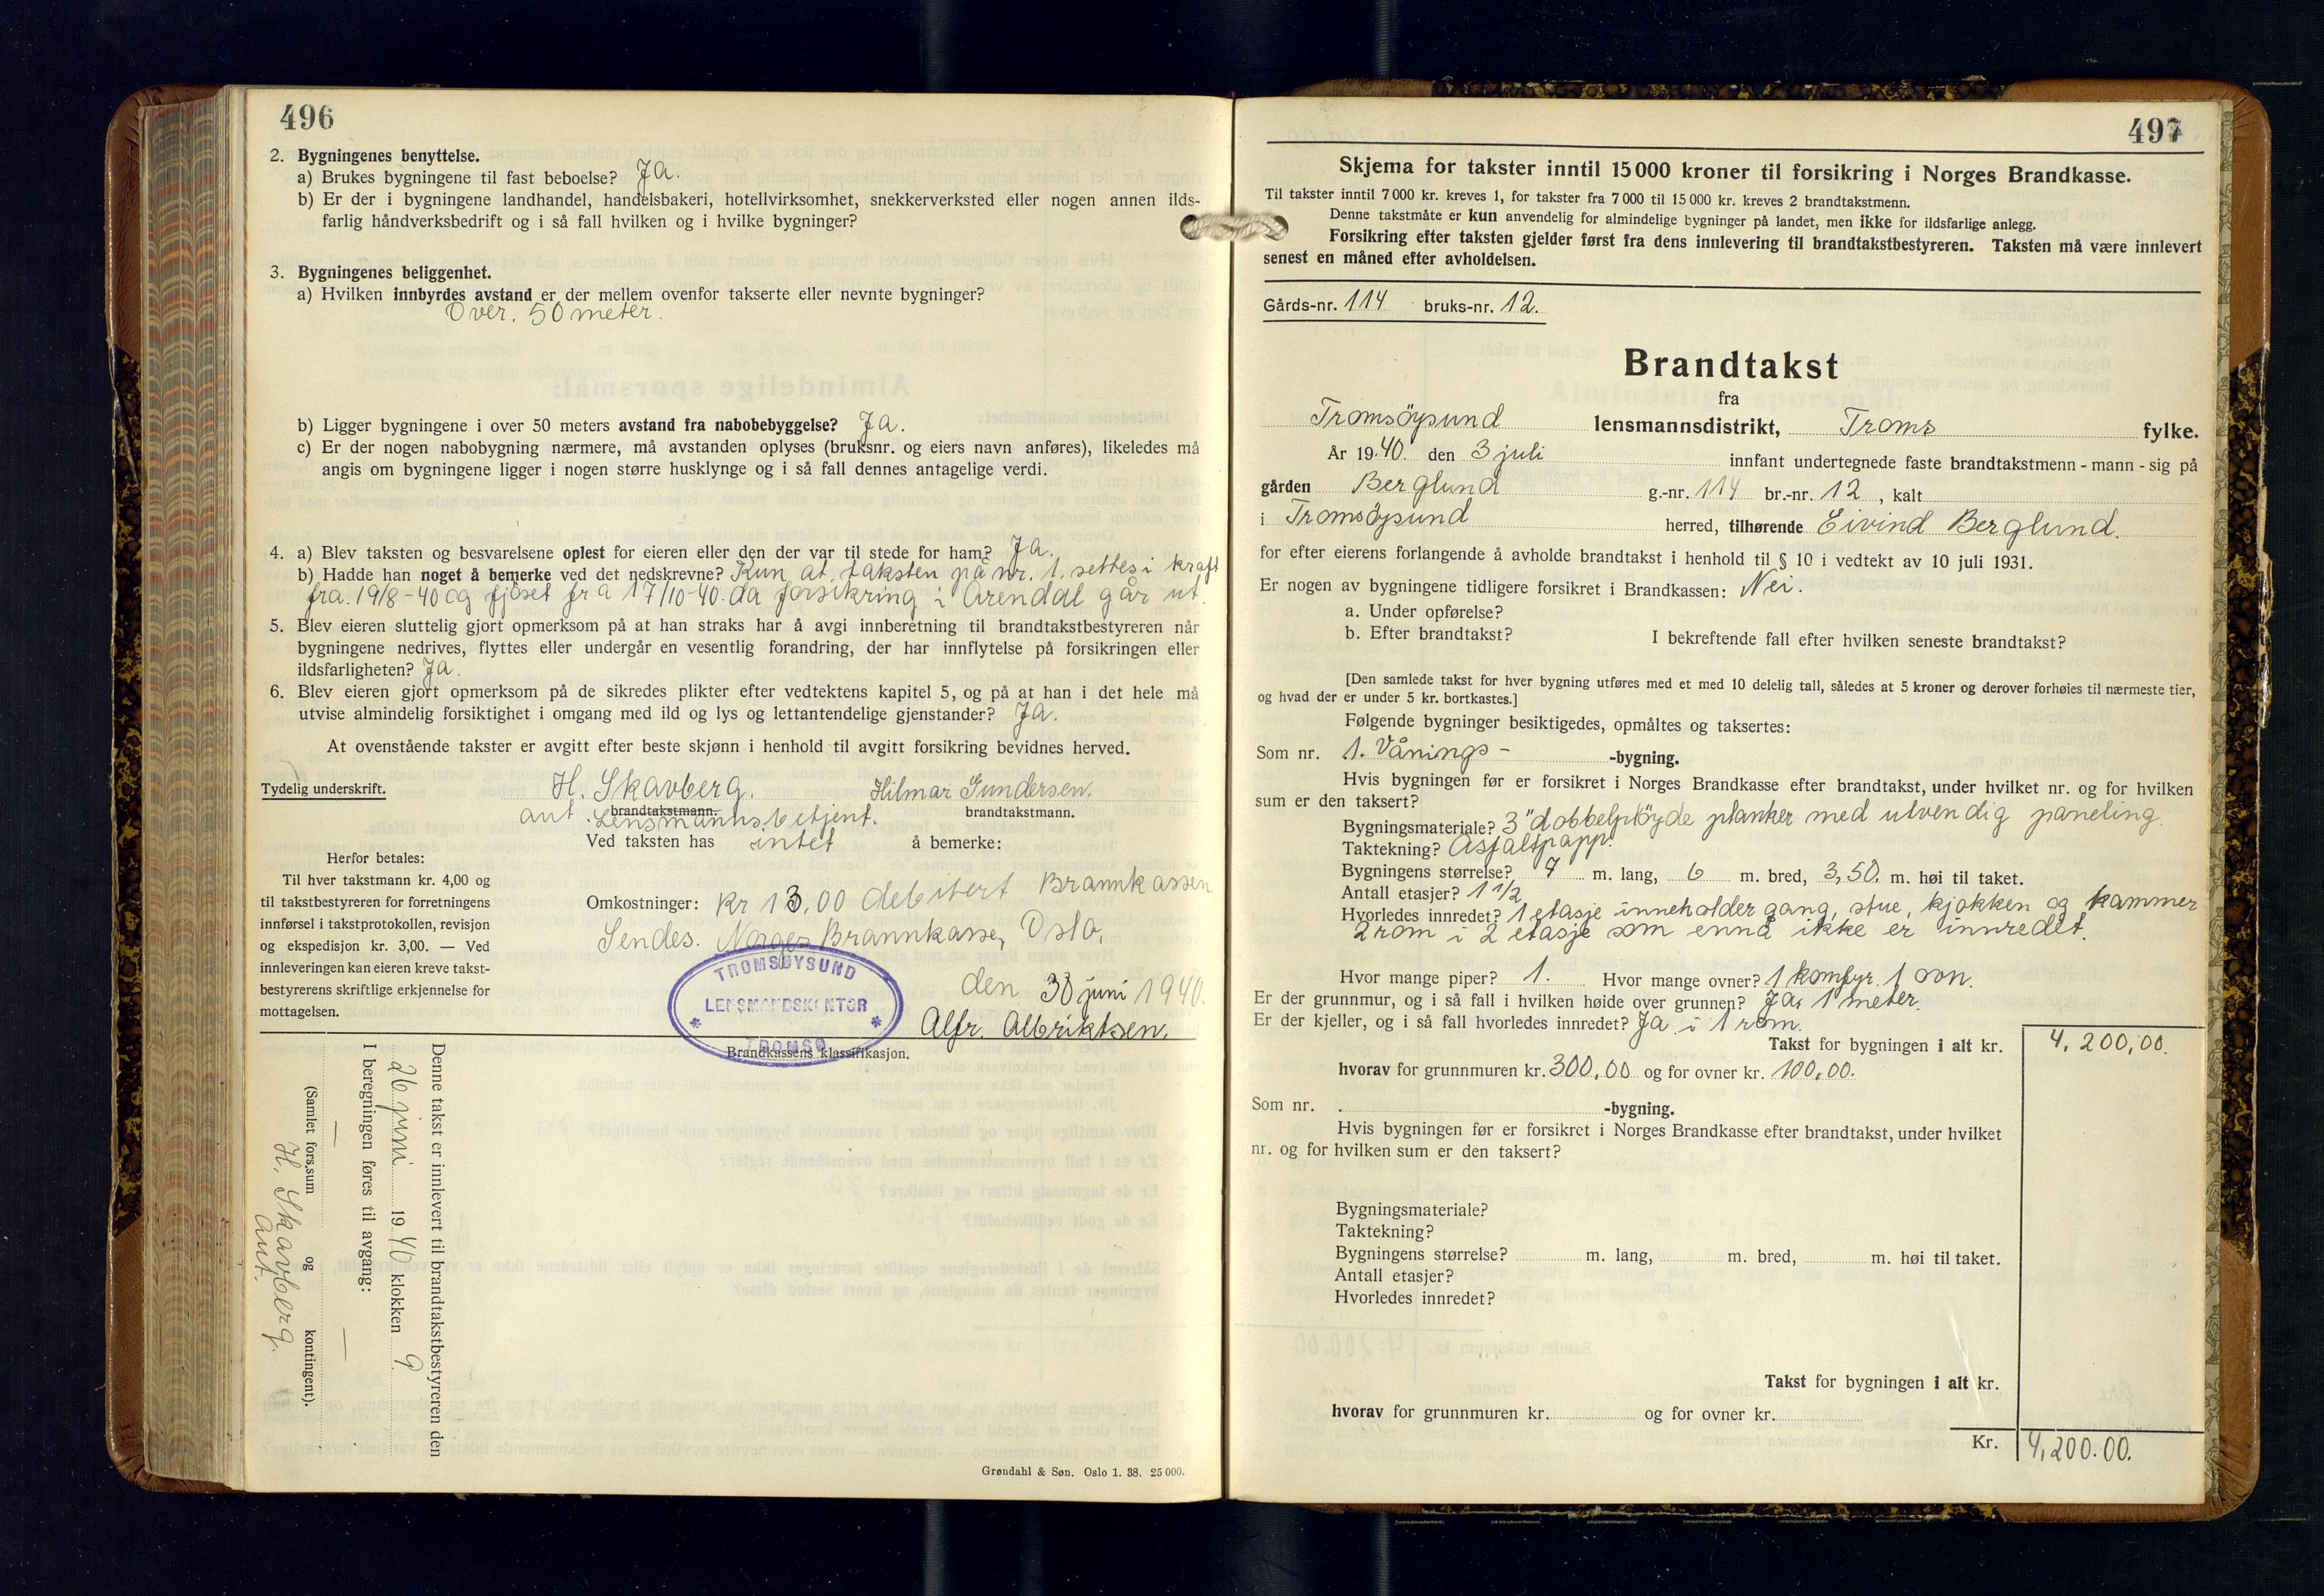 496
2. Bygningenes benyttelse.
a) Brukes bygningene til fast beboelse? Ja.
b) Er der i bygningene landhandel, handelsbakeri, hotellvirksomhet, snekkerverksted eller nogen annen ilds-
farlig håndverksbedrift og i så fall hvilken og i hvilke bygninger?
3. Bygningenes beliggenhet.
a) Hvilken innbyrdes avstand er der mellem ovenfor takserte eller nevnte bygninger?
Over. 50 meter.
b) Ligger bygningene i over 50 meters avstand fra nabobebyggelse? Ja.
c) Er der nogen nabobygning nærmere, må avstanden oplyses (bruksnr. og eiers navn anføres), likeledes må
angis om bygningene ligger i nogen større husklynge og i så fall dennes antagelige verdi.
4. a) Blev taksten og besvarelsene oplest for eieren eller den der var til stede for ham? Ja.
b) Hadde han noget å bemerke ved det nedskrevne? Kun at. taksten på nr. 1. settes i kraft
fra. 19/8-40 og fjöset fra 17/10-40. da forsikring i Arendal går ut.
5. Blev eieren sluttelig gjort opmerksom på at han straks har å avgi innberetning til brandtakstbestyreren når
bygningene nedrives, flyttes eller undergår en vesentlig forandring, der har innflytelse på forsikringen eller
ildsfarligheten? Ja.
6. Blev eieren gjort opmerksom på de sikredes plikter efter vedtektens kapitel 5, og på at han i det hele må
utvise almindelig forsiktighet i omgang med ild og lys og lettantendelige gjenstander? Ja.
At ovenstående takster er avgitt efter beste skjønn i henhold til avgitt forsikring bevidnes herved.
Tydelig underskrift. H. Skavberg. Hilmar Gundersen.
brandtakstmann. brandtakstmann.
aut. Lensmannsbetjent.
Ved taksten has intet å bemerke:
Herfor betales:
Til hver takstmann kr. 4,00 og
til takstbestyreren for forretningens
innførsel i takstprotokollen, revisjon
og ekspedisjon kr. 3,00. — Ved
innleveringen kan eieren kreve takst-
bestyrerens skriftlige erkjennelse for
mottagelsen.
Omkostninger: Kr 13,00 debitert Brannkassen
Sendes. Norges Brannkasse, Oslo.
den 30 juni 1940.
Alfr. Albriktsen.
TROMSØYSUND
LENSMANDSKONTOR
TROMSØ
Brandkassens klassifikasjon.
Denne takst er innlevert til brandtakstbestyreren den
26 juni 1940 klokken 9
I beregningen føres til avgang:
(Samlet fors.sum og kontingent).
H. Skavberg.
aut.
Grøndahl & Søn. Oslo 1. 38. 25 000.
497
Skjema for takster inntil 15 000 kroner til forsikring i Norges Brandkasse.
Til takster inntil 7 000 kr. kreves 1, for takster fra 7 000 til 15 000 kr. kreves 2 brandtakstmenn.
Denne takstmåte er kun anvendelig for almindelige bygninger på landet, men ikke for ildsfarlige anlegg.
Forsikring efter taksten gjelder først fra dens innlevering til brandtakstbestyreren. Taksten må være innlevert
senest en måned efter avholdelsen.
Gårds-nr. 114 bruks-nr. 12.
Brandtakst
fra
Tromsöysund lensmannsdistrikt, Troms fylke.
År 1940. den 3 juli innfant undertegnede faste brandtakstmenn - mann - sig på
gården Berglund g.-nr. 114 br.-nr. 12, kalt
i Tromsöysund herred, tilhørende Eivind Berglund.
for efter eierens forlangende å avholde brandtakst i henhold til § 10 i vedtekt av 10 juli 1931.
Er nogen av bygningene tidligere forsikret i Brandkassen: Nei.
a. Under opførelse?
b. Efter brandtakst? I bekreftende fall efter hvilken seneste brandtakst?
[Den samlede takst for hver bygning utføres med et med 10 delelig tall, således at 5 kroner og derover forhøies til nærmeste tier,
og hvad der er under 5 kr. bortkastes.]
Følgende bygninger besiktigedes, opmåltes og taksertes:
Som nr. 1. Vånings- -bygning.
Hvis bygningen før er forsikret i Norges Brandkasse efter brandtakst, under hvilket nr. og for hvilken
sum er den taksert?
Bygningsmateriale? 3" dobbelpløyde planker med utvendig paneling.
Taktekning? Asfaltpapp.
Bygningens størrelse? 7 m. lang, 6 m. bred, 3,50. m. høi til taket.
Antall etasjer? 1 1/2
Hvorledes innredet? 1 etasje inneholder gang, stue, kjøkken og kammer
2 rom i 2 etasje som ennå ikke er innredet.
Hvor mange piper? 1. Hvor mange ovner? 1 komfyr. 1 ovn.
Er der grunnmur, og i så fall i hvilken høide over grunnen? Ja, 1 meter.
Er der kjeller, og i så fall hvorledes innredet? Ja i 1 rom.
Takst for bygningen i alt kr. 4.200,00.
hvorav for grunnmuren kr. 300,00 og for ovner kr. 100,00.
Som nr. -bygning.
Hvis bygningen før er forsikret i Norges Brandkasse efter brandtakst, under hvilket
nr. og for hvilken sum er den taksert?
Bygningsmateriale?
Taktekning?
Bygningens størrelse? m. lang, m. bred, m. høi til taket.
Antall etasjer?
Hvorledes innredet?
Takst for bygningen i alt kr.
hvorav for grunnmuren kr. og for ovner kr.
Kr. 4,200.00.